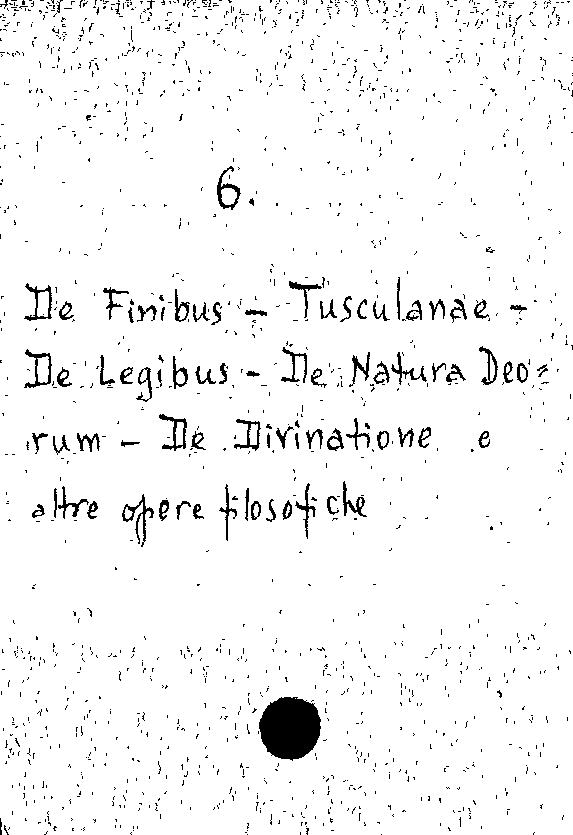 6.
De Finibus - Tusculanae -
De Legibus - De Natura Deo=
rum - De Divinatione e
altre opere filosofiche